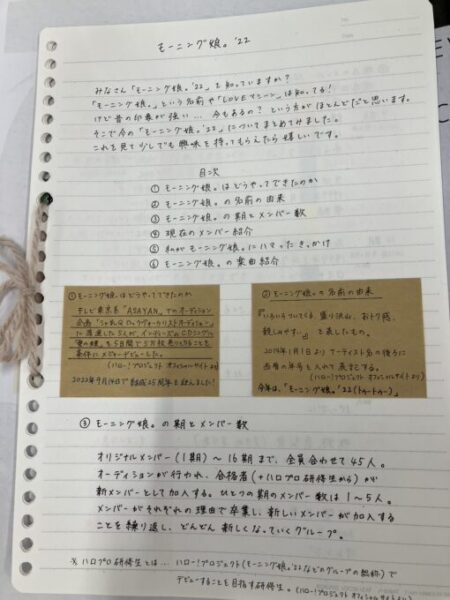 モーニング娘。'22
みなさん「モーニング娘。'22」を知っていますか？
「モーニング娘。」という名前や「LOVEマシーン」は知ってる！
けど昔の印象が強い… 今もあるの？という方がほとんどだと思います。
そこで今の「モーニング娘。'22」についてまとめてみました。
これを見て少しでも興味を持ってもらえたら嬉しいです。
目次
① モーニング娘。はどうやってできたのか
② モーニング娘。の名前の由来
③ モーニング娘。の期とメンバー数
④ 現在のメンバー紹介
⑤ 私がモーニング娘。にハマったきっかけ
⑥ モーニング娘。の楽曲紹介
①モーニング娘。はどうやってできたのか
テレビ東京系"ASAYAN"でのオーディション
企画「シャ乱Qロックヴォーカリストオーディション」
に落選した5人が、インディーズCD
「愛の種」を5日間で5万枚売りきることを
条件にメジャーデビューした。
(ハロー！プロジェクト オフィシャルサイトより)
2022年9月14日で結成25周年を迎えました！
② モーニング娘。の名前の由来
"いろいろついてくる、盛り沢山、おトク感、
親しみやすい。" を表したもの。
2014年1月1日よりアーティスト名の後ろに
西暦の年号を入れて表記する。
(ハロー！プロジェクト オフィシャルサイトより)
今年は、「モーニング娘。'22(トゥートゥー)」
③ モーニング娘。の期とメンバー数
オリジナルメンバー(1期)〜16期まで、全員合わせて45人。
オーディションが行われ、合格者(+ハロプロ研修生から)が
新メンバーとして加入する。ひとつの期のメンバー数は1〜5人。
メンバーがそれぞれの理由で卒業し、新しいメンバーが加入する
ことを繰り返し、どんどん新しくなっていくグループ。
※ハロプロ研修生とは… ハロー！プロジェクト(モーニング娘。'22などのグループの総称)で
デビューすることを目指す研修生。(ハロー！プロジェクト オフィシャルサイトより)